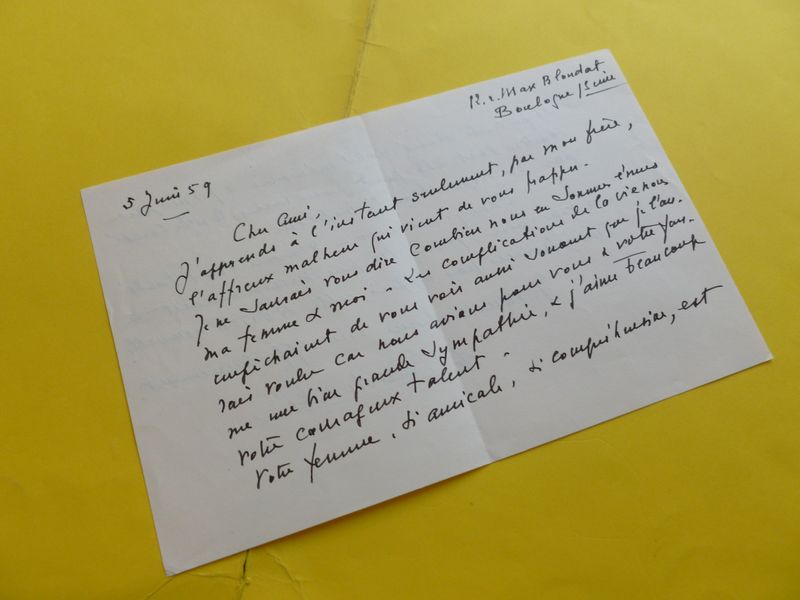 R. Max Blondat
Boulogne / Seine
5 Juin 59
Cher Ami,
J'apprends à l'instant seulement, par mon frère,
l'affreux malheur qui vient de vous frapper.
Je ne saurais vous dire combien nous en sommes émus
ma femme & moi - Les complications de la vie nous
empêchaient de vous voir aussi souvent que je l'au-
rais voulu car nous avions pour vous & votre fem-
me une bien grande sympathie, & j'aime beaucoup
votre courageux talent -
Votre femme, si amicale, si compréhensive, est